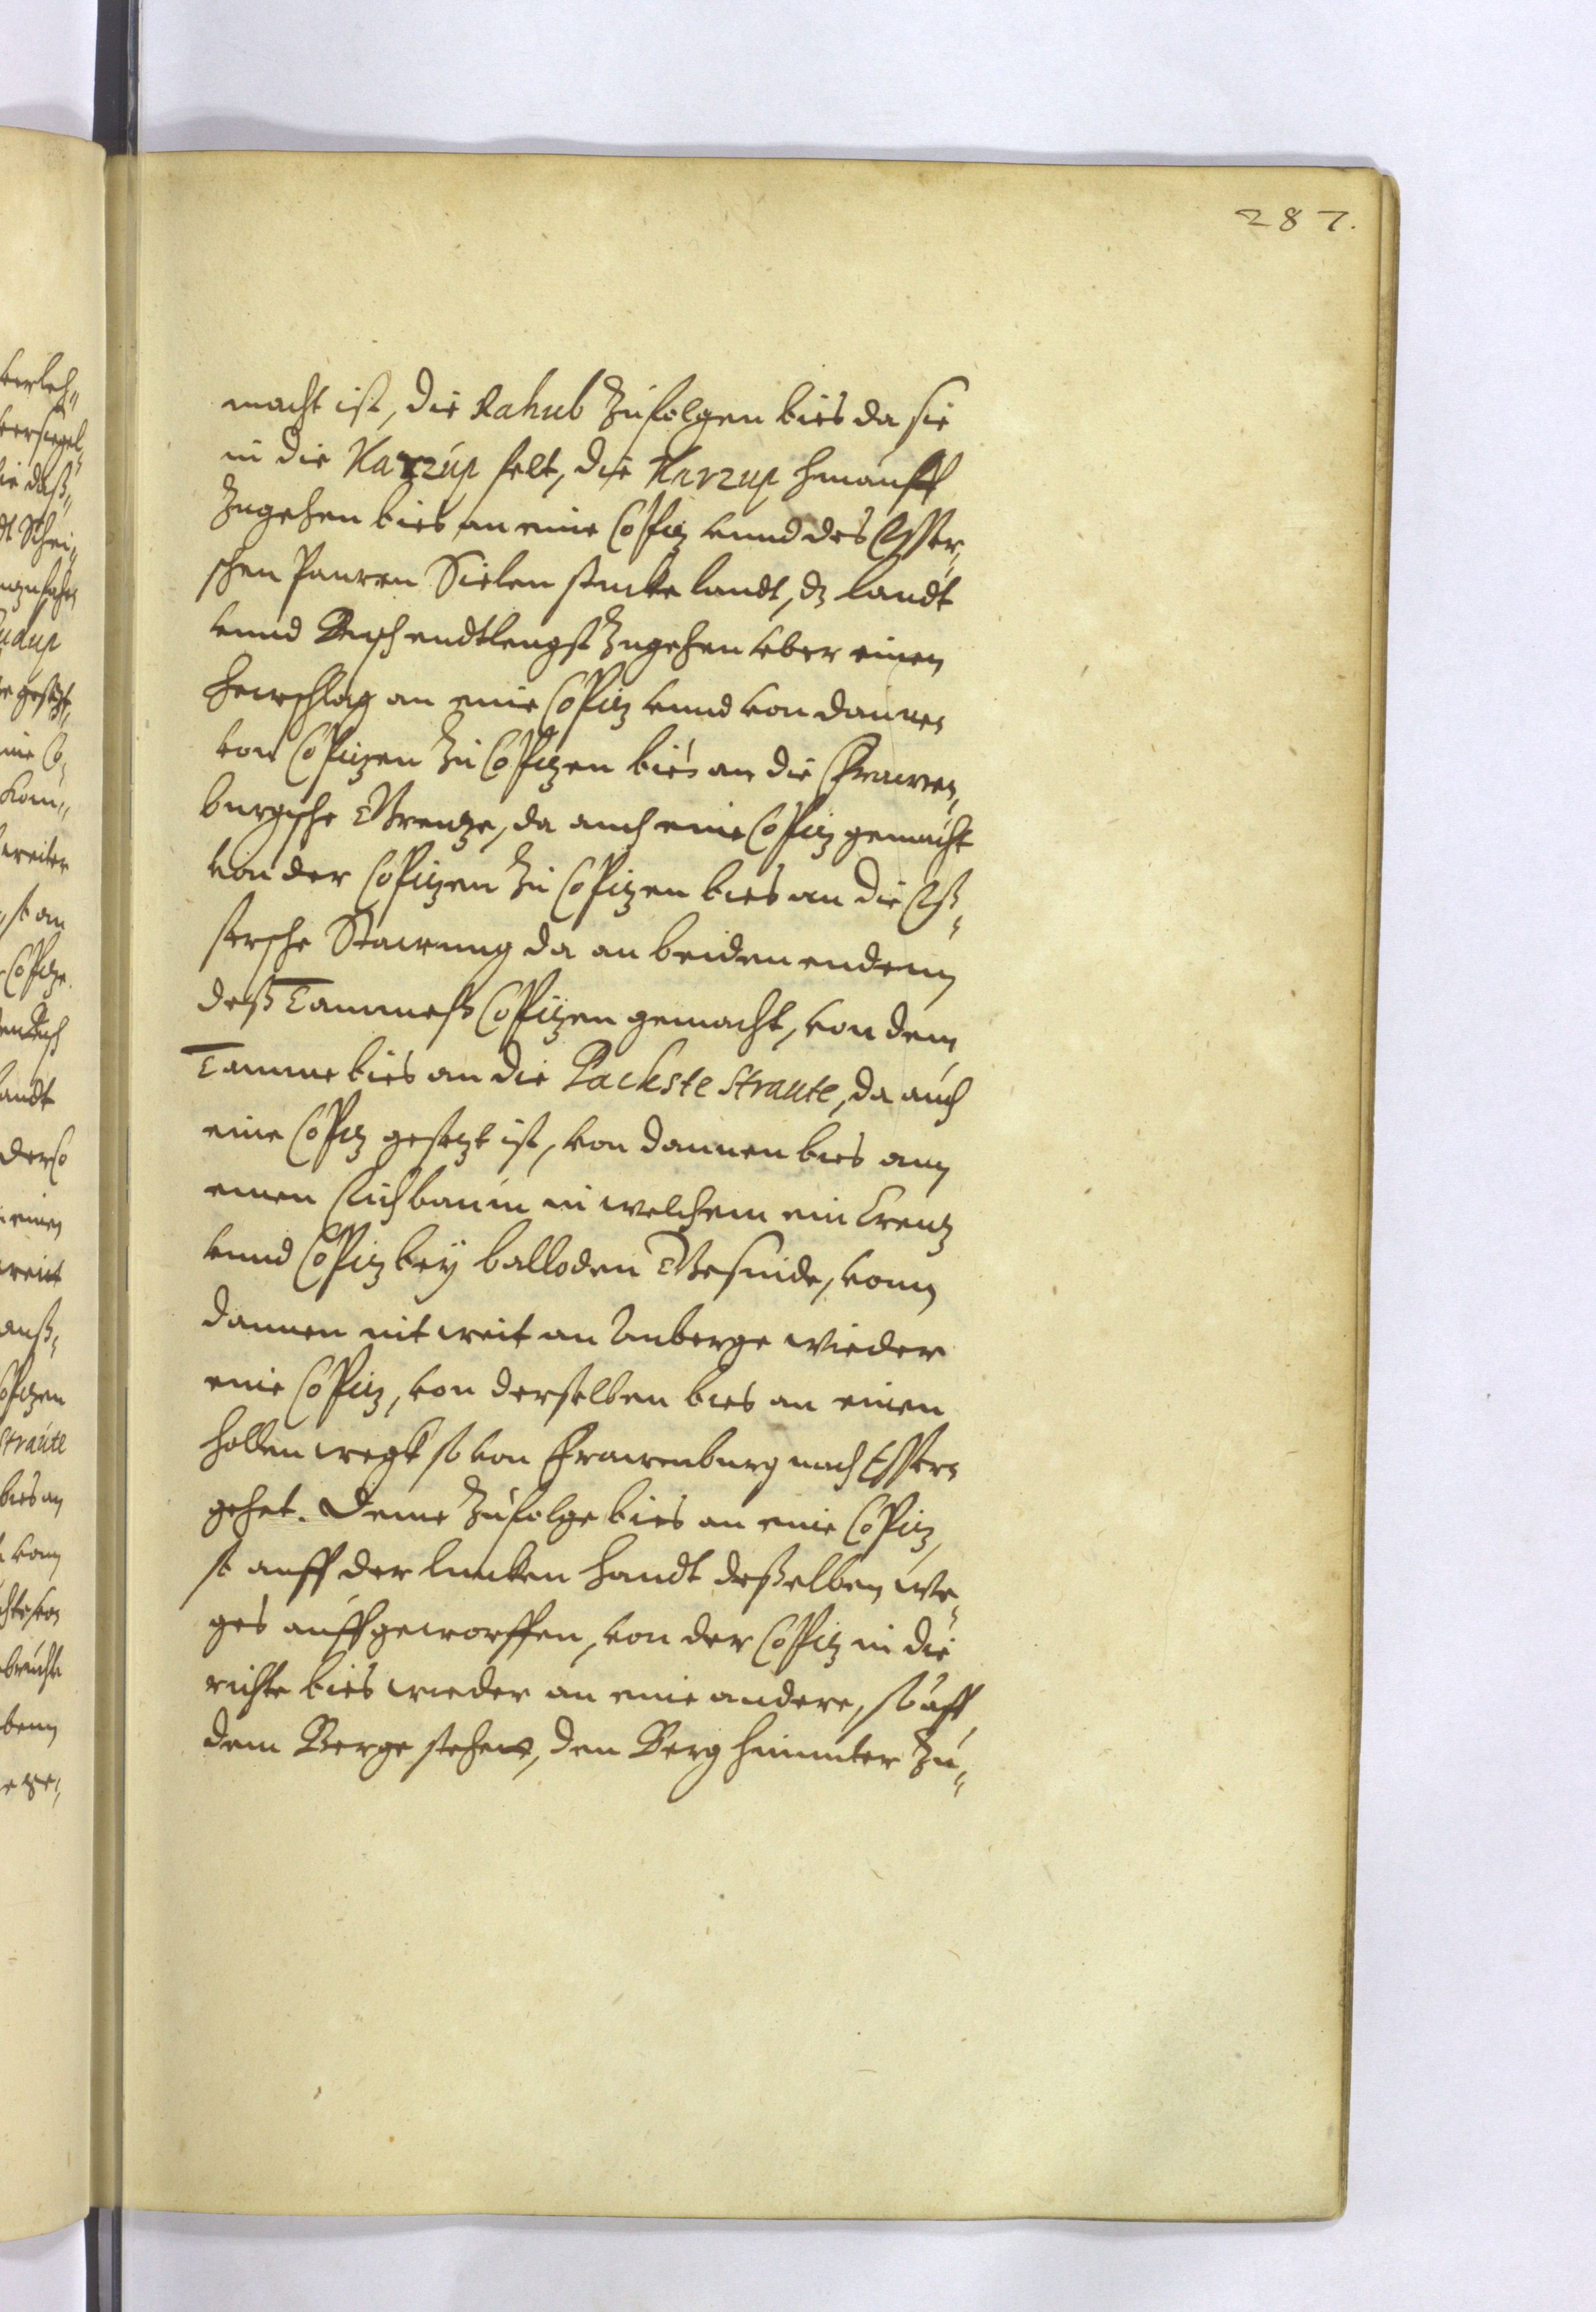 287.
macht ist, die Rahub zufolgen bies da sie
in die Karzup felt, die Karzup hinauff
zugehen bies an eine Copitz vnnd des Esser,
schen Pauren Sielen stucke landt, dz landt
vnnd Busch endtlengst zugehen vber einen
Hewschlag an eine Copitz vnnd von dannen
von Copitzen zu Copitzen bies an die Frawen,
burgische Grentze, da auch eine Copitz gemacht
von der Copitzen zu Copitzen bies an die Es,
sersche Stawung da an beiden endenn
deß Tammeß Copitzen gemacht, von dem
Tamme bies an die Packste Straute, da auch
eine Copitz gesetzt ist, von dannen bies ann
einen Eichbaum in welchem ein Creutz
vnnd Copitz bey balloden Gesinde, vonn
dannen nit weit an Anberge wieder
eine Copitz, von derselben bies an einen
hollen wegk so von Frawenburg nach Essern
gehet. Deme zufolge bies an eine Copitz,
so auff der lincken Handt deßelben We,
ges auffgeworffen, von der Copitz in die
richte bies wieder an eine andere, so auff
dem Berge stehet, den Berg hinunter zu,,